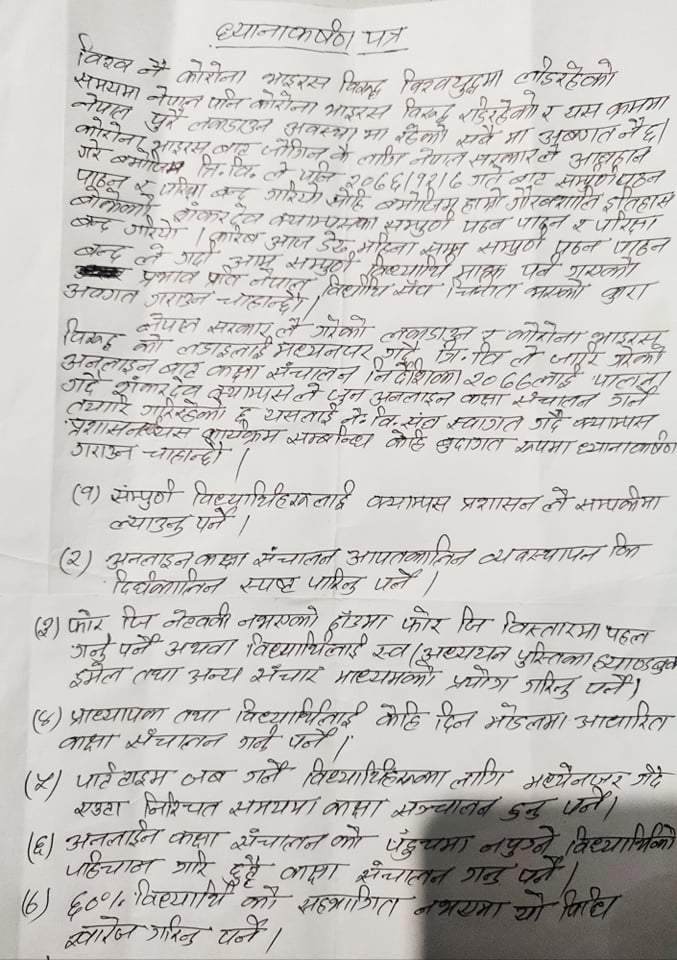 ध्यानाकर्षण पत्र
विश्व नै कोरोना भाइरस विरुद्ध विश्वयुद्धमा लडिरहेको
समयमा नेपाल पनि कोरोना भाइरस विरुद्ध लडिरहेको र यस क्रममा
नेपाल पुरै लकडाउन अवस्था मा रहेको सबै मा अवगत नै छ।
कोरोना भाइरस बाट जोगिन कै लागि नेपाल सरकार ले आह्वान
गरे बमोजिम त्रि.वि. ले पनि २०७६/१२/५ गते बाट सम्पुर्ण पठन
पाठन र परिक्षा बन्द गरियो सोहि बमोजिम हाम्रो गौरवशालि इतिहास
बोकेको शंकरदेव क्याम्पसका सम्पुर्ण पठन पाठन र परिक्षा
बन्द गरियो। करिब आज डेढ महिना सम्म सम्पुर्ण पठन पाठन
बन्द ले गर्दा आम सम्पुर्ण विध्यार्थि माझ पर्न गएको
प्रभाव प्रति नेपाल विद्यार्थि संघ चिन्तित भएको कुरा
अवगत गराउन चाहान्छौ।
नेपाल सरकार ले गरेको लकडाउन र कोरोना भाइरस
विरुद्ध को लडाइलाई मध्यनजर गर्दै त्रि.वि ले जारि गरेको
अनलाइन बाट कक्षा संचालन निर्देशिका २०७७लाई पालना
गर्दै शंकरदेव क्याम्पस ले जुन अनलाइन कक्षा संचालन गर्न
तयारि गरिरहेको छ यसलाई ने.वि.संघ स्वागत गर्दै क्याम्पस
प्रशासनलाई यस कार्यक्रम सम्बन्धि केहि बुदागत रूपमा ध्यानाकर्षण
गराउन चाहान्छौ।
(१) संम्पुर्ण विध्यार्थिहरूलाई क्याम्पस प्रशासन ले सम्पर्कमा
ल्याउनु पर्ने।
(२) अनलाइन कक्षा संचालन आपतकालिन व्यवस्थापन कि
दिर्घकालिन स्पष्ट पारिनु पर्ने।
(३) फोर जि नेटवर्क नभएको ठाँउमा फोर जि विस्तारमा पहल
गर्नु पर्ने अथवा विध्यार्थिलाई स्व/अध्ययन पुस्तिका ह्याण्डबुक
इमेल तथा अन्य संचार माध्यमको प्रयोग गरिनु पर्ने।
(४) प्राध्यापक तथा विध्यार्थिलाई केहि दिन मोडलमा आधारित
कक्षा संचालन गर्नु पर्ने।
(५) पार्ट टाइम जब गर्ने विध्यार्थिहरूका लागि मध्येनजर गर्दै
एउटा निश्चित समयमा कक्षा सञ्चालन हुनु पर्ने।
(६) अनलाईन कक्षा संचालन को पहुँचमा नपुग्ने विध्यार्थिको
पहिचान गरि छुट्टै कक्षा संचालन गर्नु पर्ने।
(७) ६०% विध्यार्थि को सहभागित नभएमा यो विधि
खारेज गरिनु पर्ने।